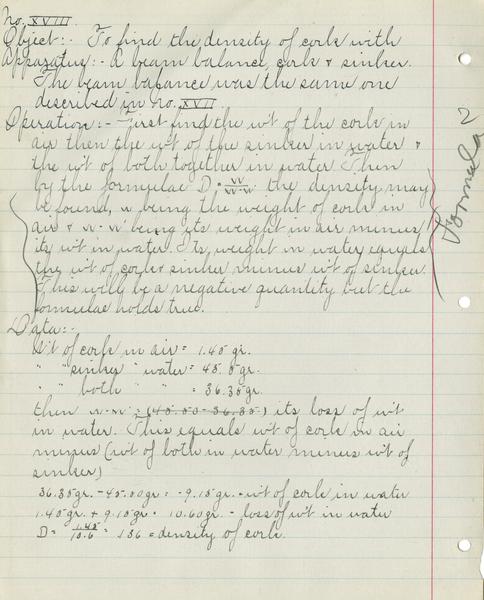 No. XVIII.
Object:- To find the density of cork with
Apparatus:- A beam balance, cork & sinker.
The beam balance was the same one
described in No. XVII
Operation:- First find the w't of the cork in
air then the w't of the sinker in water &
the w't of both together in water. Then
by the formulae D = w/w-w' the density may
be found, w being the weight of cork in
air & w-w' being its weight in air minus
its w't in water. Its weight in water equals
the w't of cork & sinker minus w't of sinker.
This will be a negative quantity but the
formulae holds true.
Formula?
Data:-
W't of cork in air = 1.45 gr.
" " sinker " water = 45.5 gr.
" " both " " = 36.35 gr.
then w-w' = (45.50-36.35) its loss of w't
in water. This equals w't of cork in air
minus (w't of both in water minus w't of
sinker)
36.35 gr. - 45.50 gr. = -9.15 gr. = w't of cork in water
1.45 gr. + 9.15 gr. = 10.60 gr. = loss of w't in water
D = 1.45/10.6 = .136 = density of cork.